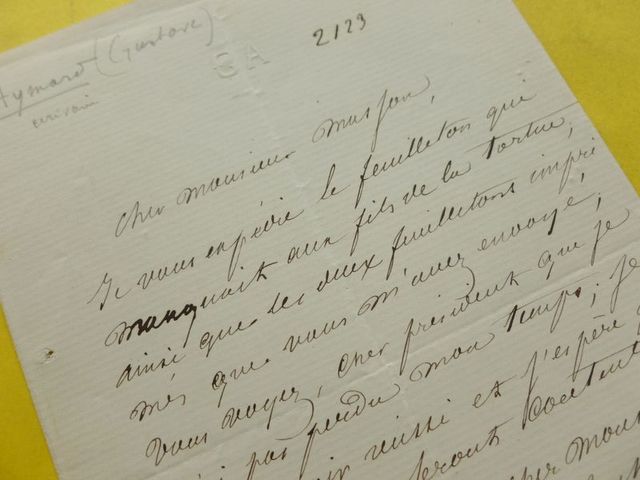 Aymard (Gustave)
écrivain
GA
2/23
Cher Monsieur Musson,
Je vous expédie le feuilleton qui
manquait aux fils de la tortue,
ainsi que les deux feuilletons impri
més que vous m'avez envoyé;
vous voyez, cher président que je
pas perdu mon temps; je
réussi et j'espère
seront content
cher Mons